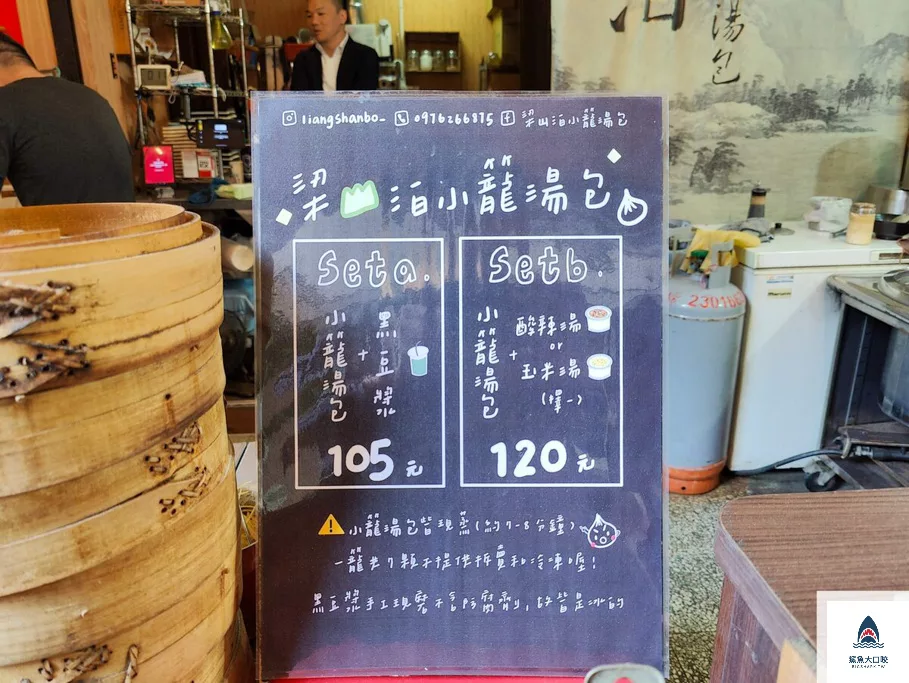 liangshanbo_ 0976266875 梁山泊小籠湯包
梁山泊小籠湯包
Seta.
小籠湯包
+
黑豆漿
105元
Setb.
小籠湯包
+
酸辣湯
or
玉米湯
(擇一)
120元
小籠湯包皆現蒸(約7-8分鐘)
一籠共7顆不提供拆賣和冷凍喔!
黑豆漿手工現磨不含防腐劑,故皆是冰的
湯包
230116
鯊魚大口咬